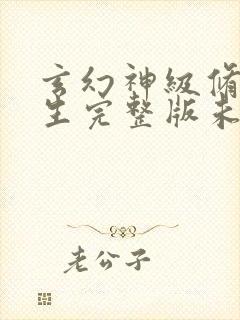 玄幻神级脩
生完整版未
老公子